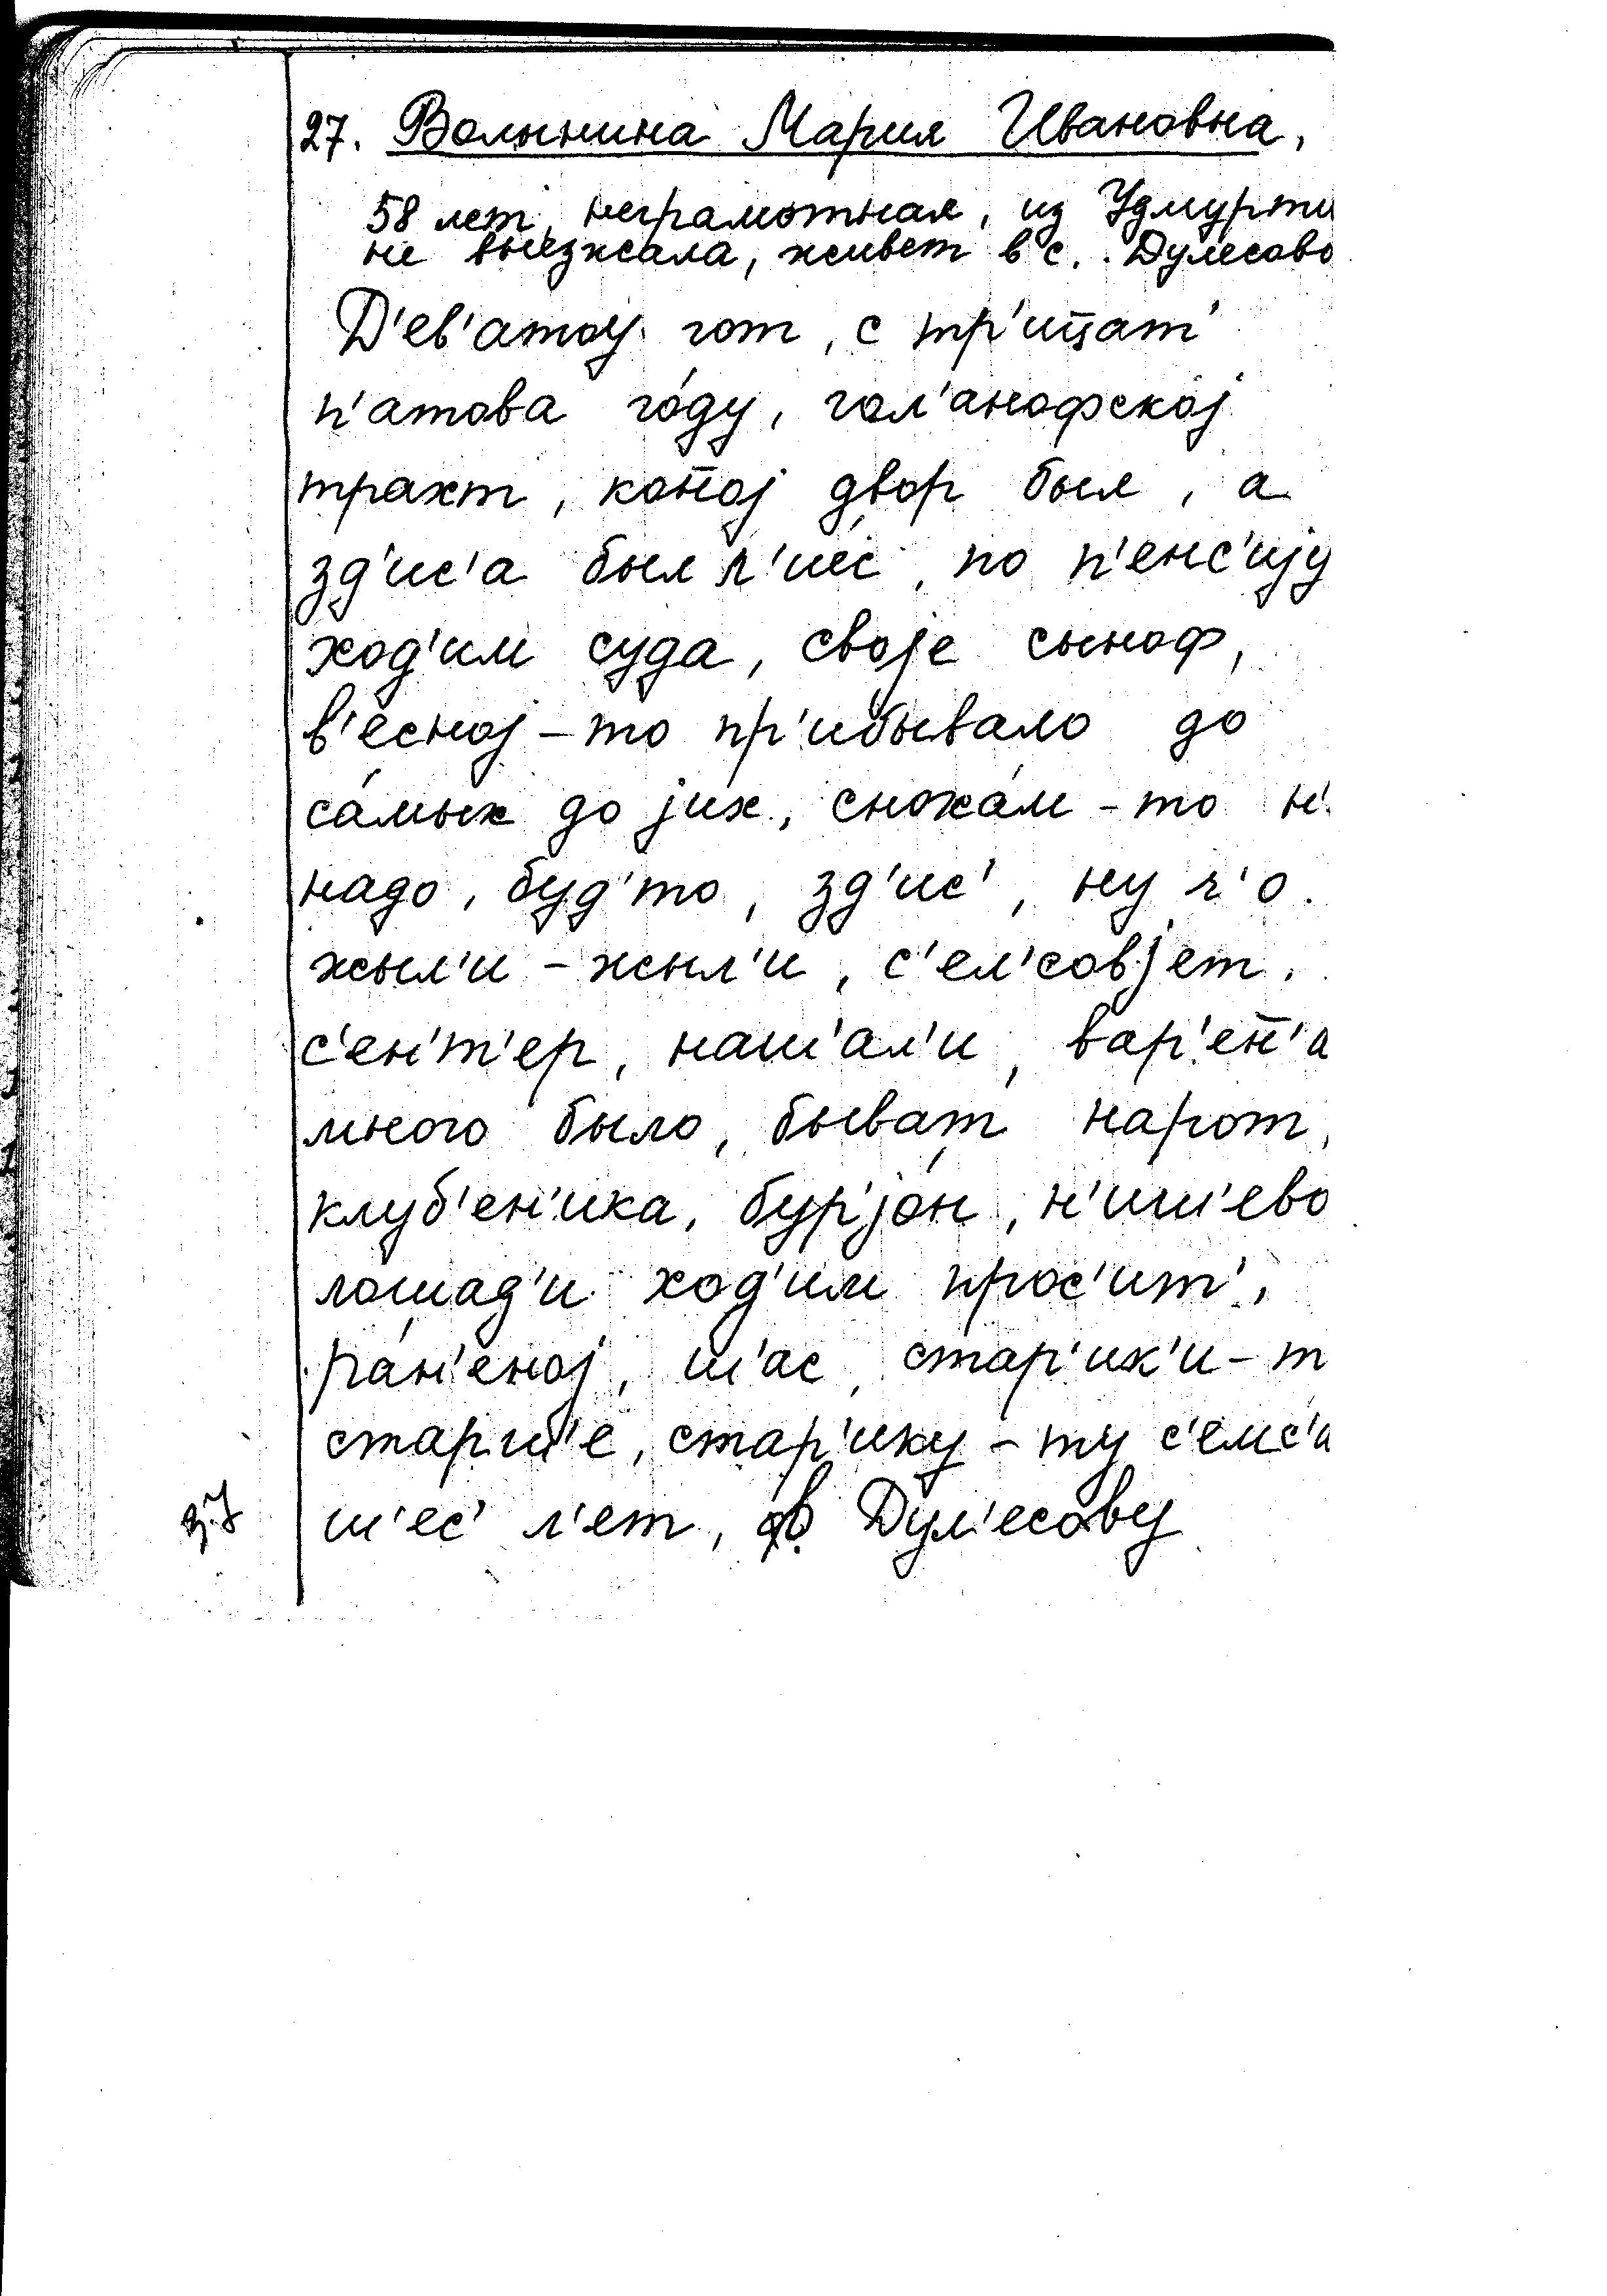 27. Волынина Мария Ивановна,
58 лет, неграмотная, из Удмурти
не выезжала, живет в с. Дулесово
Д'ев'атоj гот, с тр'ицат'
п'атова го́ду, гол'анофскоj
трахт, коп̄оj двор был, а
зд'ис'а был л'иес, по п'енс'иjу
ход'им суда, своjе сыноф,
в'есноj-то пр'ибывало до
са́мых до jих, сножа́м-то н'
надо, буд'то, зд'ис', ну ч'о.
жыл'и-жыл'и, с'ел'совjет.
с'ен'т'ер, наш'ал'и, вар'ен̄'а
много было, быват нарот,
клуб'ен'ика, бурjо́н, н'иш'ево
лошад'и ход'им прос'ит',
ра́н'еноj, ш'ас, стар'ик'и-т
стары'е, стар'ику-ту с'емс'и
ш'ес' л'ет, в Дул'есову
37